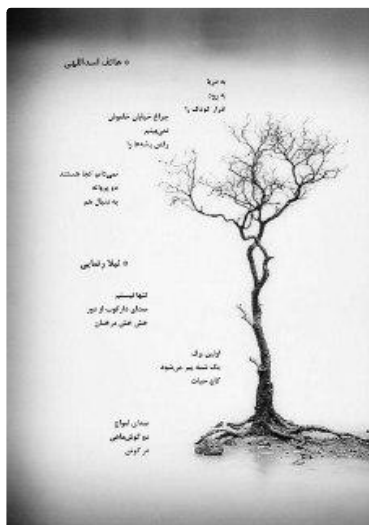 * هاتف اسداللهی
به دریا
به رود
کودک را
چراغ خیابان خاموش
نمی‌بینم
رقص پشه‌ها را
نمی‌دانم کجا هستند
دو پروانه
به دنبال هم
* لیلا رضایی
تنها نیستم
صدای دارکوب از دور
خش خش درختان
اولین برف
یک شبه پیر می‌شود
کاج حیاط
صدای امواج
دو گوش‌ماهی
در گوش